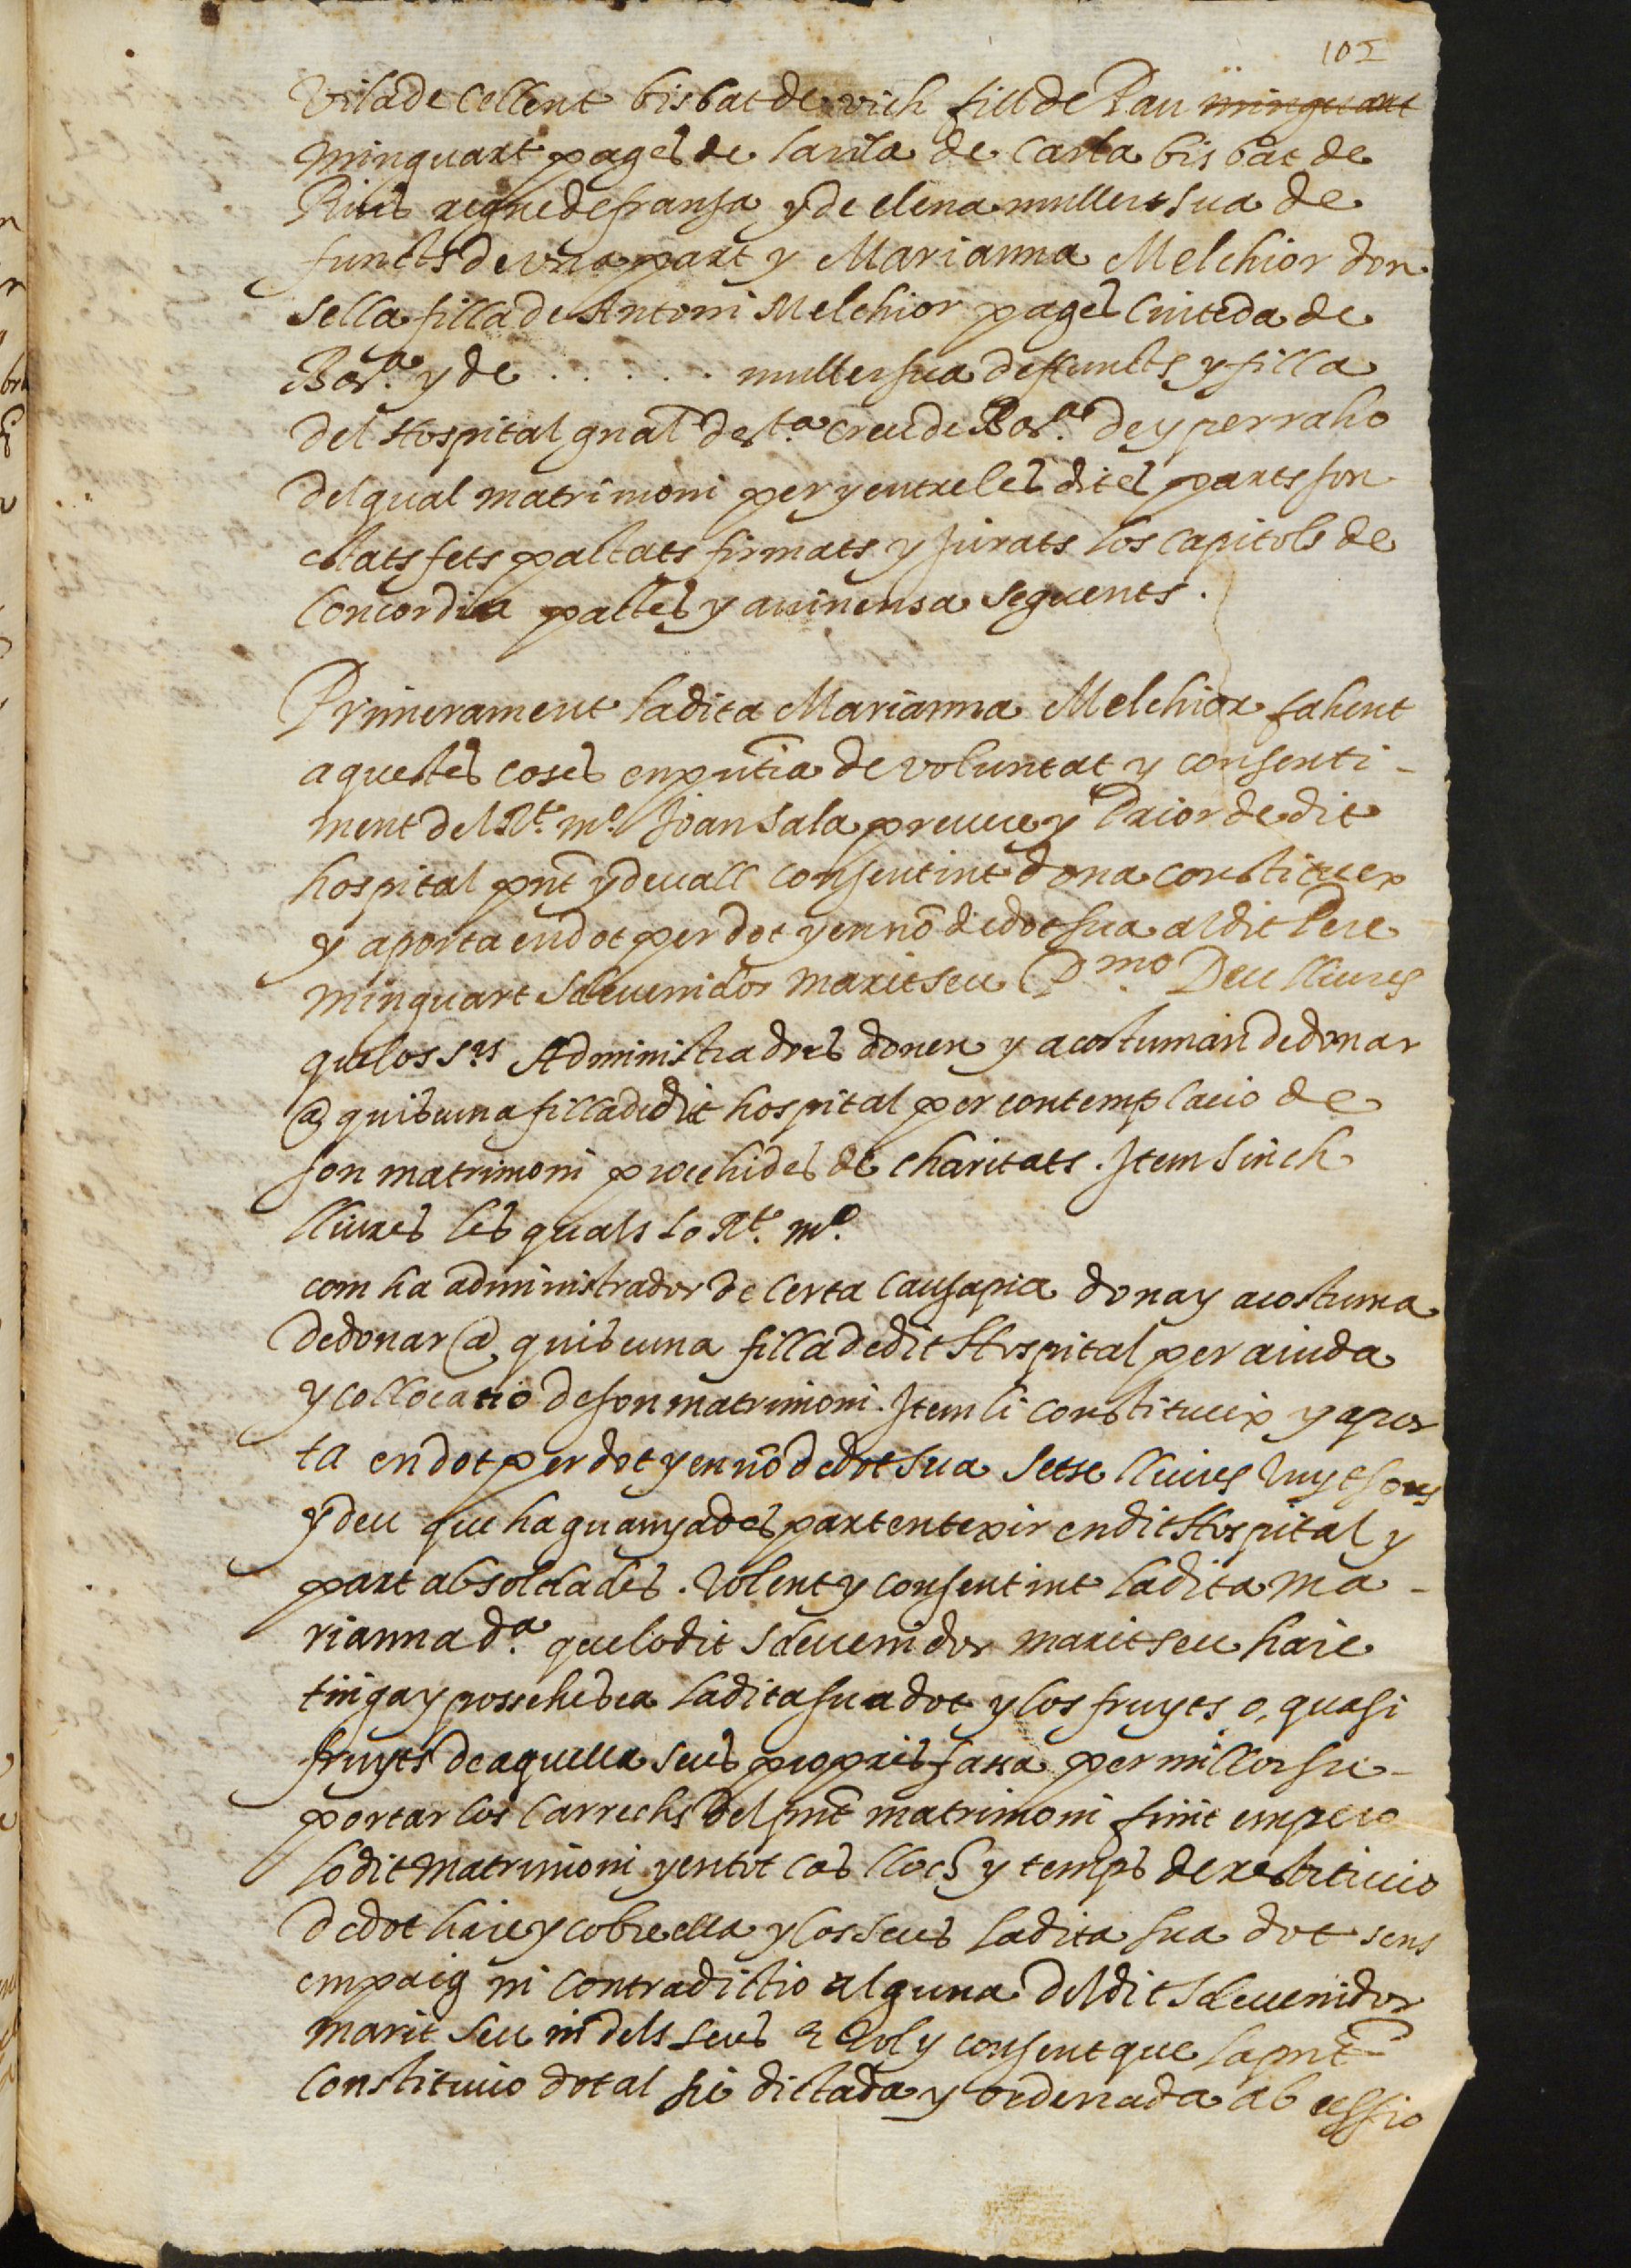 102
Vila de Cellent bisbat de vich fill de Pau minguart
Minguart pages de la vila de Carla bisbat de
Rius regne de fransa y de elena muller sua de
functs de una part y Marianna Melchior don
sella filla de Antoni Melchior pages Ciuteda de
Bar.ª y de . . . . . . muller sua deffuncts y filla
del Hospital gnal de s.ta Creu de Bar.ª de y per raho
del qual matrimoni per y entre les dites parts son
estats fets pactats firmats y jurats los capitols de
Concordia pactes y auinensa seguents.
Primerament la dita Marianna Melchior fahent
aquestes coses en pntia de voluntat y consenti-
ment del Rt. mº. Joan Sala preuere y Prior de dit
hospital pnt y deuall consentint dona constitueix
y aporta en dot per dot y en nō de dot sua al dit Pere
Minguart sdeuenidor marit seu P.mo Deu lliures
que los s.rs Administradors donen y acostuman de donar
a quiscuna filla de dit hospital per contemplacio de
son matrimoni procehides de charitats. Item sinch
lliures les quals lo Rt. mº.
com ha administrador de certa causa pia dona y acostuma
de donar a quiscuna filla de dit Hospital per aiuda
y collocatio de son matrimoni. Item li constitueix y apor
ta en dot per dot y en nō de dot sua setse lliures vuyt sous
y deu que ha guanyades part en texir en dit Hospital y
part ab soldades. Volent y consentint la dita Ma-
rianna d.ª que lo dit sdeuenidor marit seu haie
tinga y possehesca la dita sua dot y los fruyts o, quasi
fruyts de aquella seus propris fassa per millor su-
portar los carrechs del pnt matrimoni finit empero
lo dit matrimoni y en tot cas lloch y temps de restitucio
de dot haie y cobre ella y los seus la dita sua dot sens
empaig ni contradictio alguna del dit sdeuenidor
marit seu ni dels seus E vol y consent que la pnt
Constitucio dotal sie dictada y ordenada ab cessio